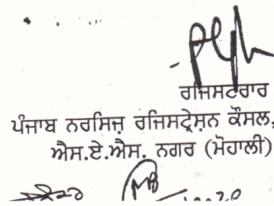 ਰਜਿਸਟਰਾਰ
ਪੰਜਾਬ ਨਰਸਿਜ਼ ਰਜਿਸਟ੍ਰੇਸ਼ਨ ਕੌਂਸਲ,
ਐਸ.ਏ.ਐਸ. ਨਗਰ (ਮੋਹਾਲੀ)